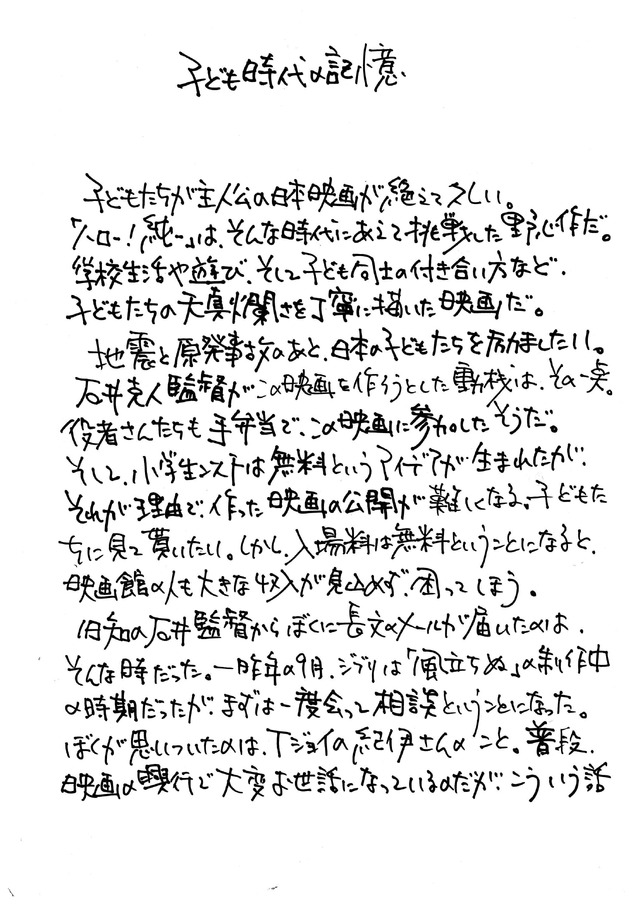 子ども時代の記憶
子どもたちが主人公の日本映画が絶えて久しい。
「ハロー!純一」は、そんな時代にあえて挑戦した野心作だ。
学校生活や遊び、そして子ども同士の付き合い方など、
子どもたちの天真爛漫さを丁寧に描いた映画だ。
地震と原発事故のあと、日本の子どもたちを励ましたい。
石井克人監督がこの映画を作ろうとした動機は、その一点。
役者さんたちも手弁当で、この映画に参加したそうだ。
そして、小学生ンストは無料というアイデアが生まれたが、
それが理由で、作った映画の公開が難しくなる。子どもた
ちに見て貰いたい。しかし、入場料は無料ということになると、
映画館の人も大きな収入が見込めず、困ってしまう。
旧知の石井監督からぼくに長文のメールが届いたのは、
そんな時だった。一昨年の9月、ジブリは「風立ちぬ」の制作中
の時期だったが、まずは一度会って相談ということになった。
ぼくが思いついたのは、Tジョイの紀伊さんのこと。普段、
映画の興行で大変お世話になっているのだが、こういう話